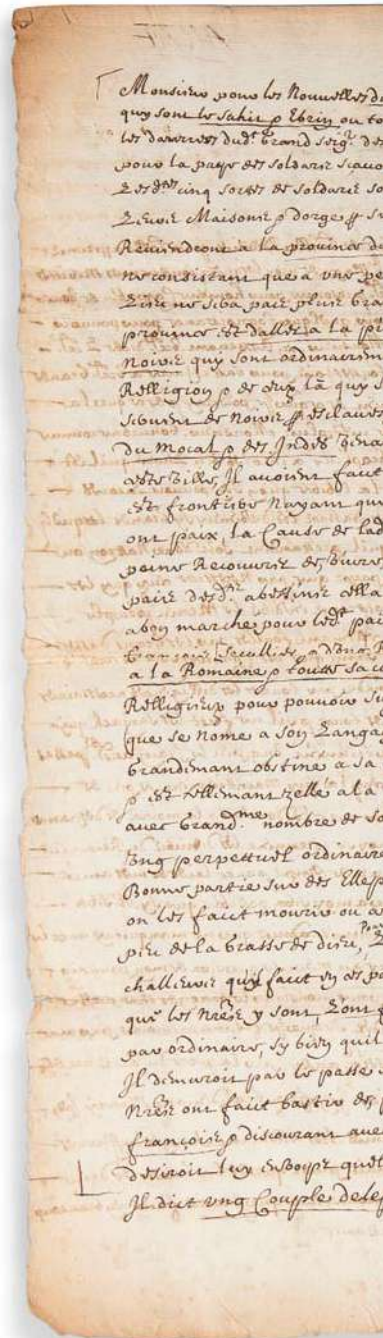 Monsieur pour les Nouvelles du
quy sont le sahir p Ebrin ou to
les daierres dud.t Grand seig.r des
pour la paye des soldartz scavo
Lesd.tes cinq sortes de soldartz so
Leurs Maisons p dorge p su
Reuiendront a la prouince du
ne consistant que a vne pe
Lieu ne sera pais plus Gra
prouince est daller a la pr
Noirs quy sont ordinairem
Relligion p de ceux la quy s
seruent de Noirs p esclaues
du Mocal p des Indes Vena
ceste Ville, Il auoient faict
est frontiere Nayant que
ont paix, la Cause de lad
poine Recouurir des viures
pais des d.tz abessins ella
abon marche pour led.t pai
francois
a la Romaine p toutte sa c
Relligieux pour pouuoir su
que se nome a son Langa
Grandemant obstine a sa
p est tellemant zelle a la
auec Grand.me nombre de so
Vng perpettuel ordinaire
Bonne partie sur des Ellep
on les faict mourir ou a
peu de la Grasse de dieu,
challeurs quil faict en ces pa
que les Nres y sont, Lont
par ordinaire, sy bien quil
Il demuroit par le passe
Nres ont faict bastir des
francois p discourant aue
desiroit luy enuoyer quel
Il dict vng Couple delep